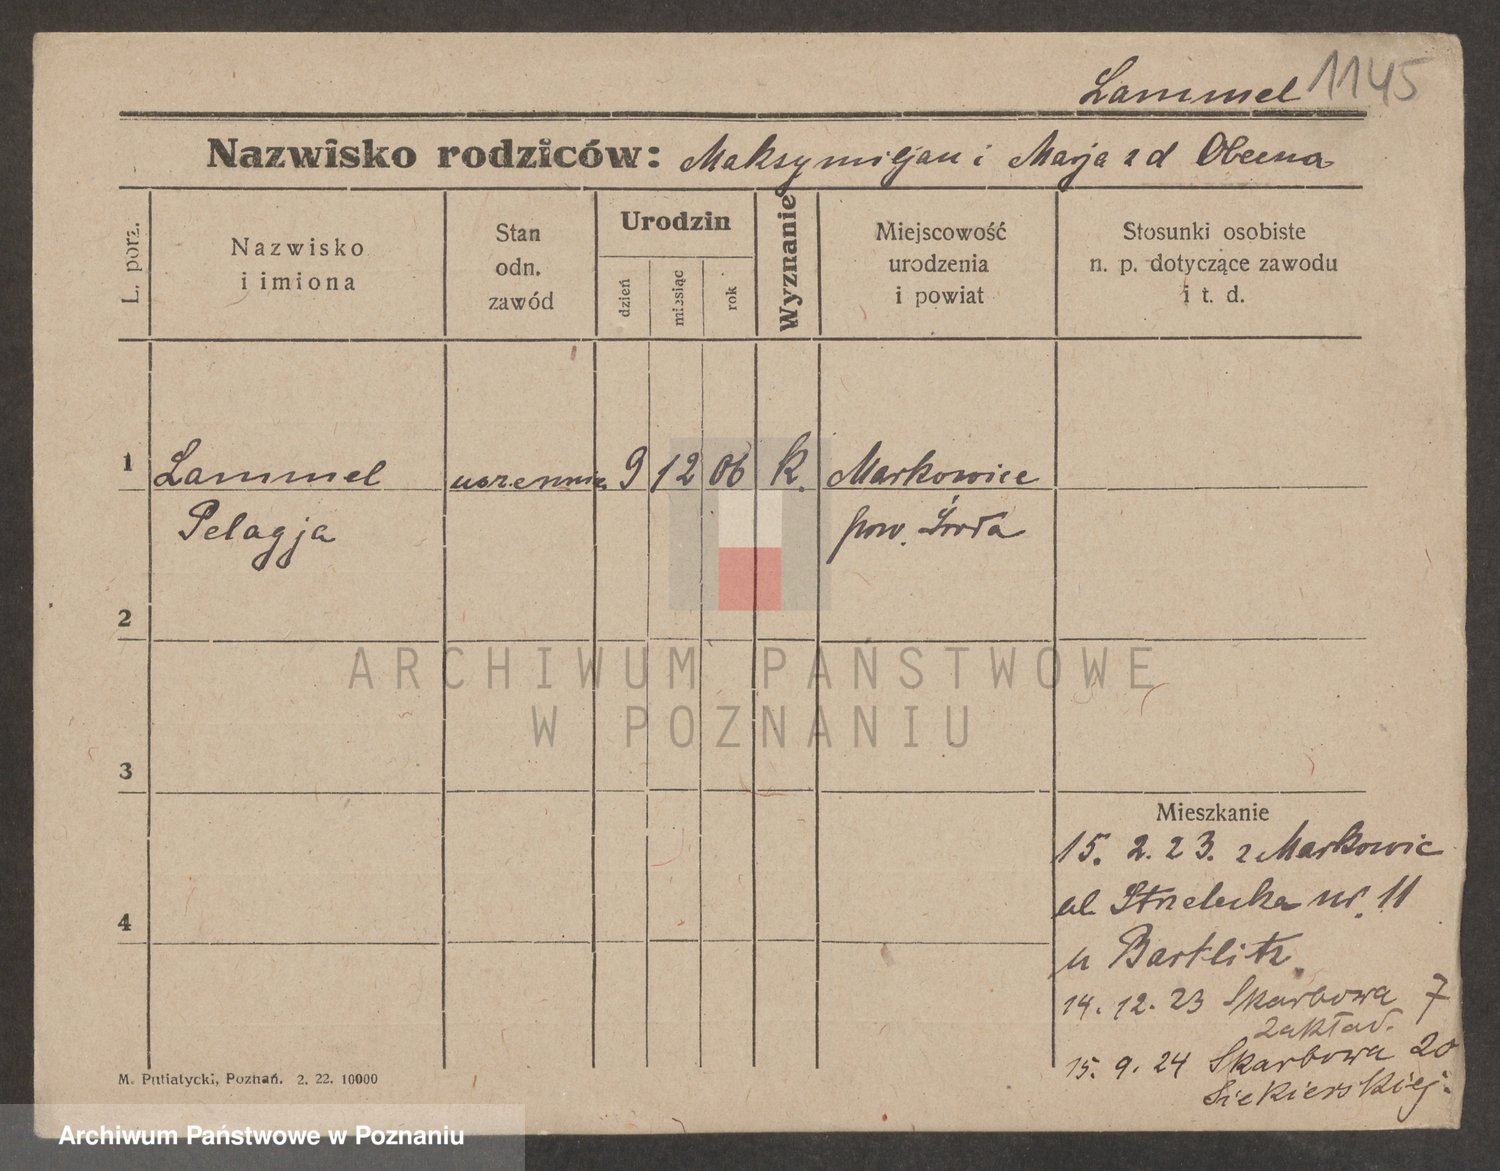 Lammel 1145
Nazwisko rodziców: Maksymiljan i Marja z d Obecna
L. porz.
Nazwisko
i imiona
Stan
odn.
zawód
Urodzin
dzień
miesiąc
rok
Wyznanie
Miejscowość
urodzenia
i powiat
Stosunki osobiste
n. p. dotyczące zawodu
i t. d.
1 Lammel uczennica 9 12 06 k. Markowice
Pelagja pow. Środa
2
ARCHIWUM PAŃSTWOWE
W POZNANIU
3
Mieszkanie
15. 2. 23. z Markowic
4
ul. Strzelecka nr. 11
u Bartlitz
14. 12. 23 Skarbowa 7
zakład.
15. 9. 24 Skarbowa 20
Siekierskiej.
M. Putiatycki, Poznań. 2. 22. 10000
Archiwum Państwowe w Poznaniu